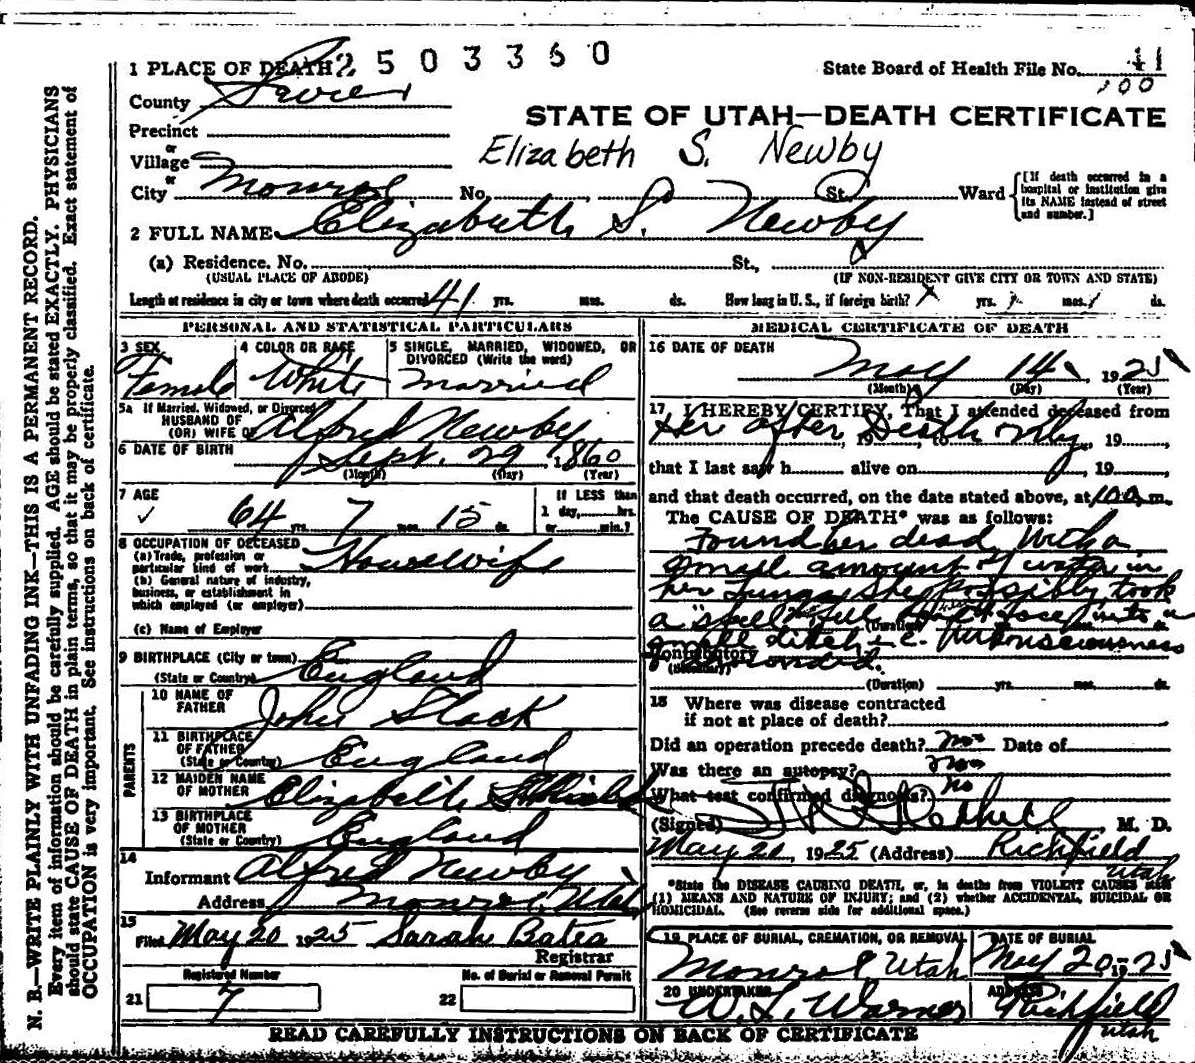 1 PLACE OF DEATH 2 5 0 3 3 6 0
State Board of Health File No. 41
100
County Sevier
STATE OF UTAH—DEATH CERTIFICATE
Precinct
or
Village
Elizabeth S. Newby
or
City Monroe No. St. Ward
[If death occurred in a hospital or institution give its NAME instead of street and number.]
2 FULL NAME Elizabeth S. Newby
(a) Residence. No. St.,
(USUAL PLACE OF ABODE) (IF NON-RESIDENT GIVE CITY OR TOWN AND STATE)
Length of residence in city or town where death occurred 41 yrs. mos. ds. How long in U.S., if foreign birth? yrs. mos. ds.
PERSONAL AND STATISTICAL PARTICULARS
3 SEX
Female
4 COLOR OR RACE
White
5 SINGLE, MARRIED, WIDOWED, OR DIVORCED (Write the word)
Married
5a If Married, Widowed, or Divorced
HUSBAND OF
(OR) WIFE OF Alfred Newby
6 DATE OF BIRTH Sept. 29, 1860
(Month) (Day) (Year)
7 AGE
64 yrs. 7 mos. 15 ds.
If LESS than
1 day, hrs.
or min.?
8 OCCUPATION OF DECEASED
(a) Trade, profession or
particular kind of work Housewife
(b) General nature of industry,
business, or establishment in
which employed (or employer)
(c) Name of Employer
9 BIRTHPLACE (City or town)
(State or Country) England
PARENTS
10 NAME OF
FATHER John Slack
11 BIRTHPLACE
OF FATHER
(State or Country) England
12 MAIDEN NAME
OF MOTHER Elizabeth
13 BIRTHPLACE
OF MOTHER
(State or Country) England
14
Informant Alfred Newby
Address Monroe, Utah
15
Filed May 20 1925 Sarah Bates
Registrar
Registered Number
21 7
No. of Burial or Removal Permit
22
MEDICAL CERTIFICATE OF DEATH
16 DATE OF DEATH
May 14 1925
(Month) (Day) (Year)
17 I HEREBY CERTIFY, That I attended deceased from
Her after Death only, 19 , to 19 ,
that I last saw h alive on , 19 ,
and that death occurred, on the date stated above, at m.
The CAUSE OF DEATH* was as follows:
Found her dead, With a
small amount of water in
her Lungs She possibly took
a "spell" & fell face into a
(Duration)
small ditch & Unconsciousness
Contributory
(Secondary)
(Duration) yrs. mos. ds.
18 Where was disease contracted
if not at place of death?
Did an operation precede death? no Date of
Was there an autopsy? no
What test confirmed diagnosis? no
(Signed) M. D.
May 20, 1925 (Address) Richfield
Utah
*State the DISEASE CAUSING DEATH, or, in deaths from VIOLENT CAUSES state
(1) MEANS AND NATURE OF INJURY; and (2) whether ACCIDENTAL, SUICIDAL OR
HOMICIDAL. (See reverse side for additional space.)
19 PLACE OF BURIAL, CREMATION, OR REMOVAL
Monroe Utah
DATE OF BURIAL
May 20, 1925
20 UNDERTAKER
W. L. Warner
ADDRESS
Richfield
Utah
READ CAREFULLY INSTRUCTIONS ON BACK OF CERTIFICATE
N. B.—WRITE PLAINLY WITH UNFADING INK—THIS IS A PERMANENT RECORD.
Every item of information should be carefully supplied. AGE should be stated EXACTLY. PHYSICIANS
should state CAUSE OF DEATH in plain terms, so that it may be properly classified. Exact statement of
OCCUPATION is very important. See instructions on back of certificate.